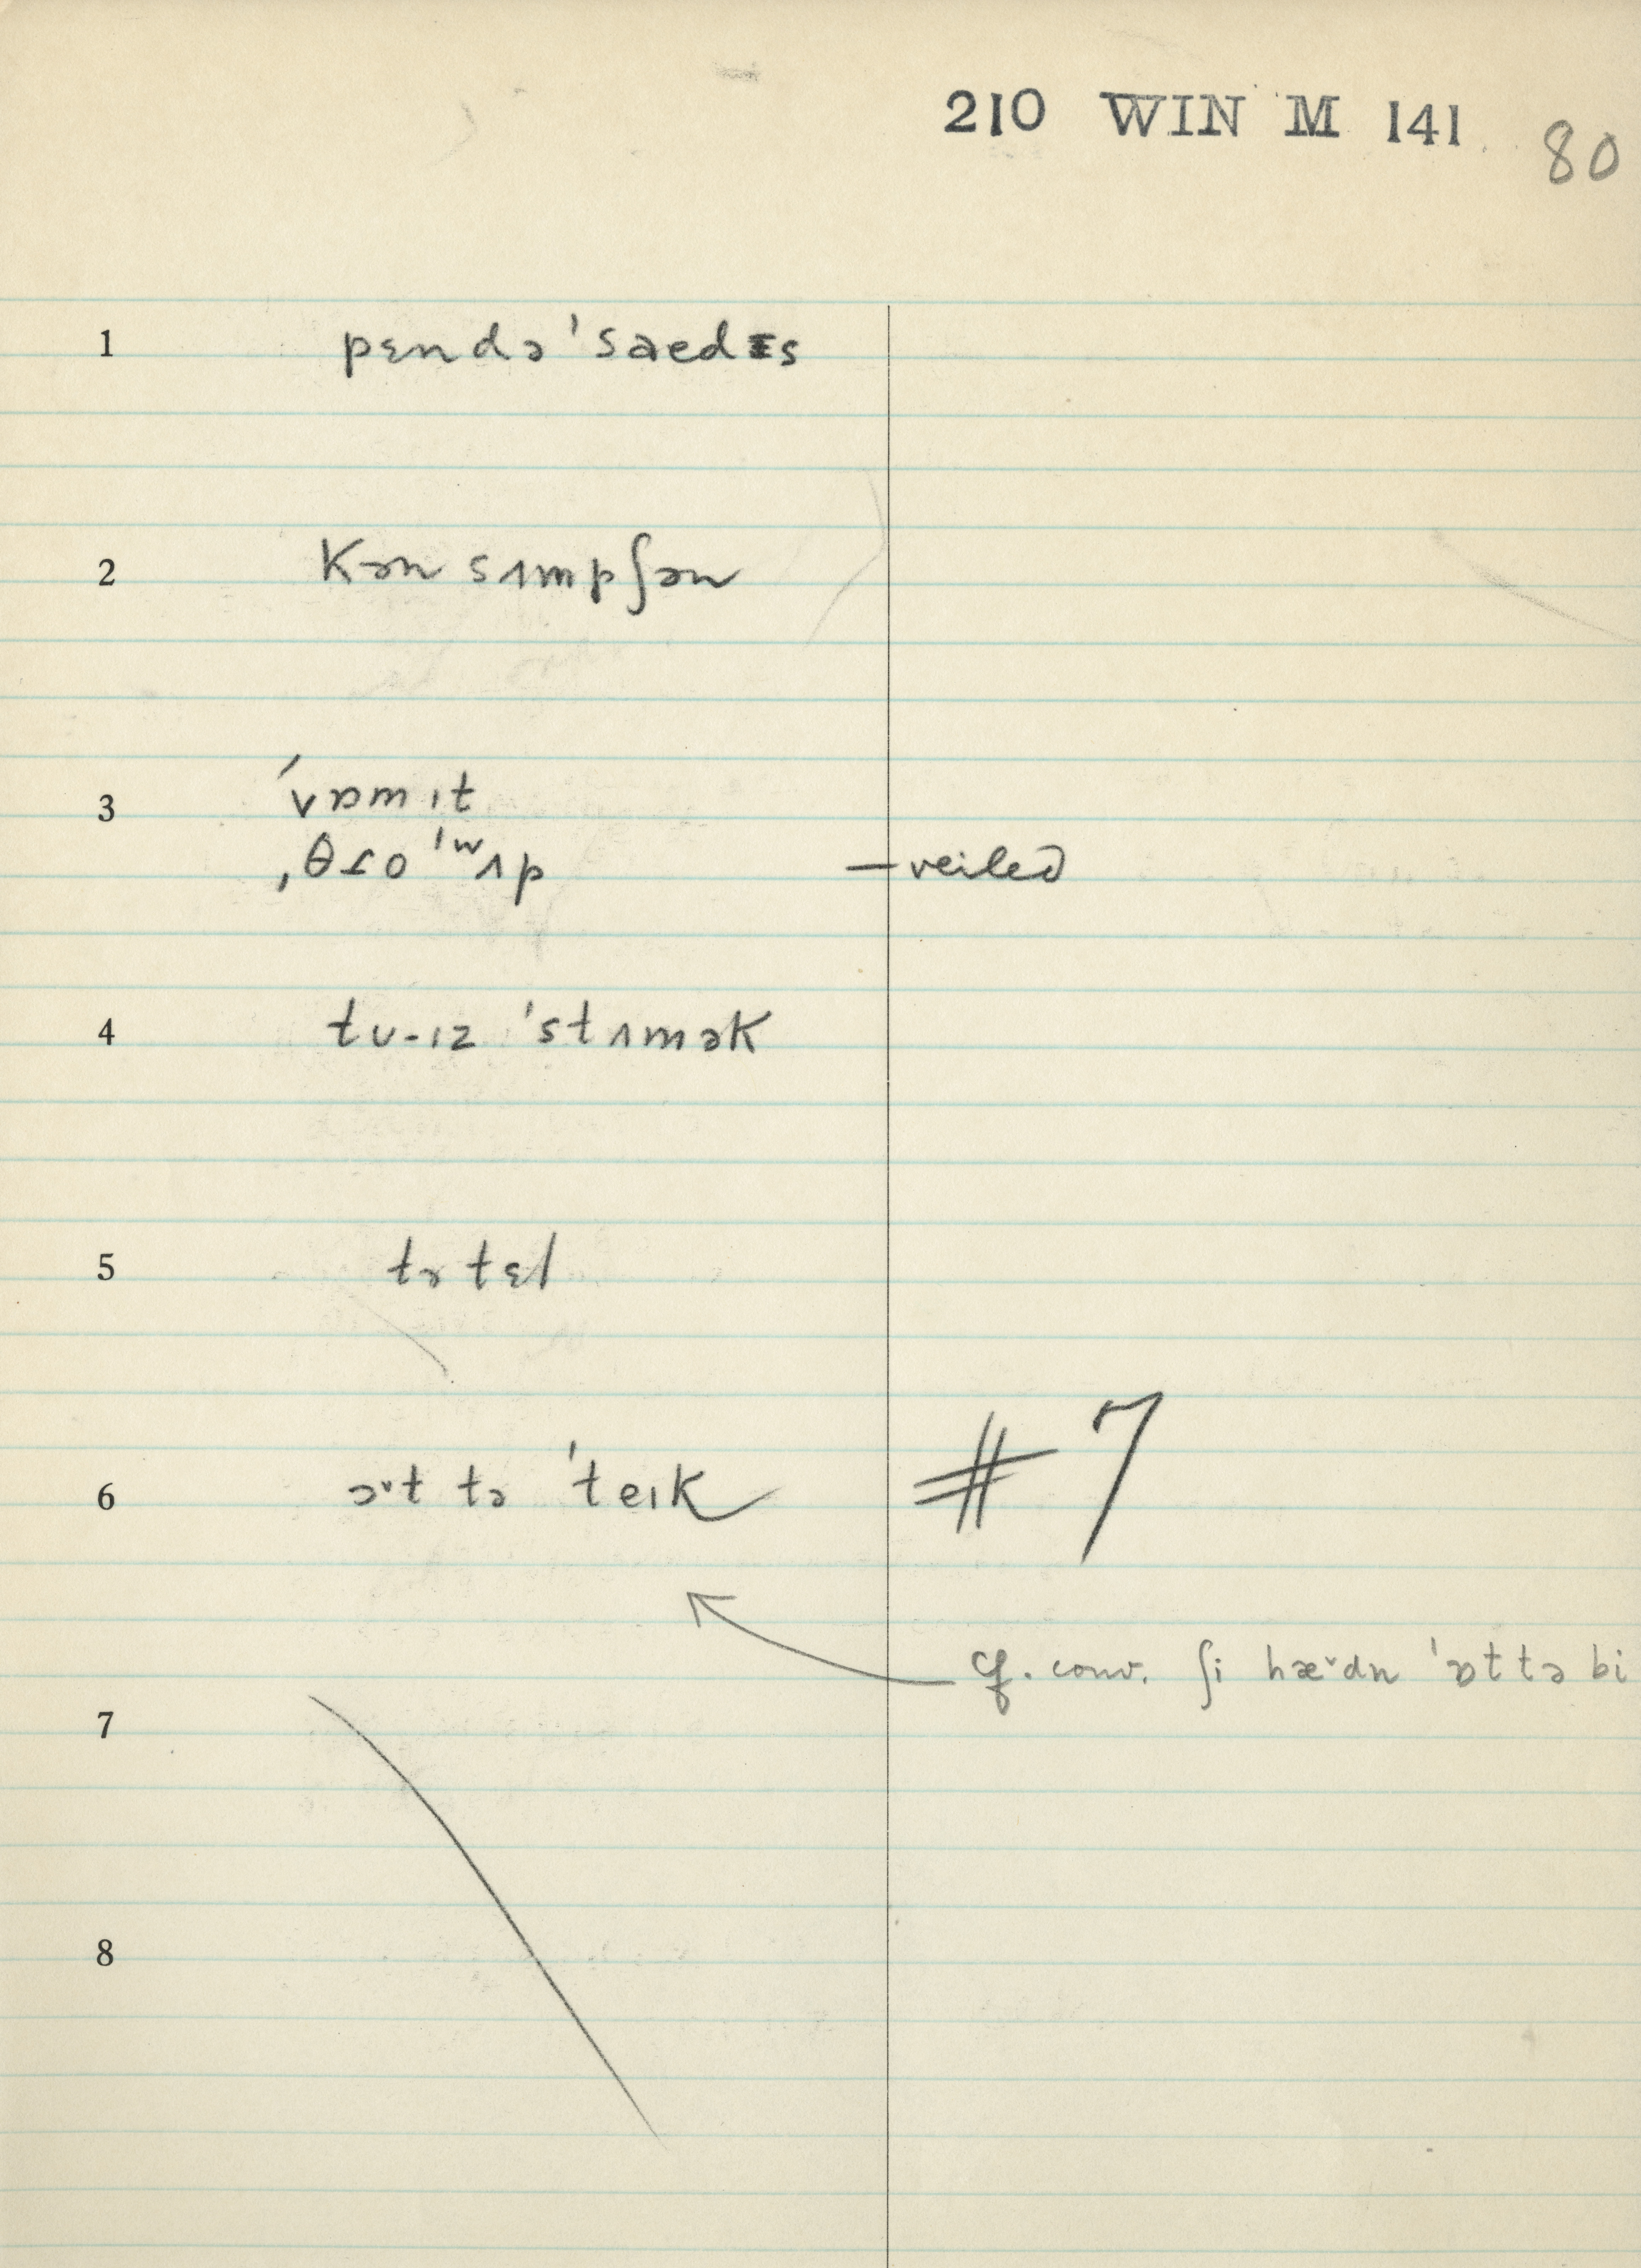 210 WIN M 141 80
1 pɛndə'saedɪs
2 Kən sɪmpʃən
3 'vɒmɪt
ˌθɹo 'ʷʌp —veiled
4 tu-ɪz 'stʌmək
5 tɚ tɛl
6 ɔˇt tə 'teɪk # 7
cf. conv. ʃi hæˇdn 'ɒt tə bi
7
8